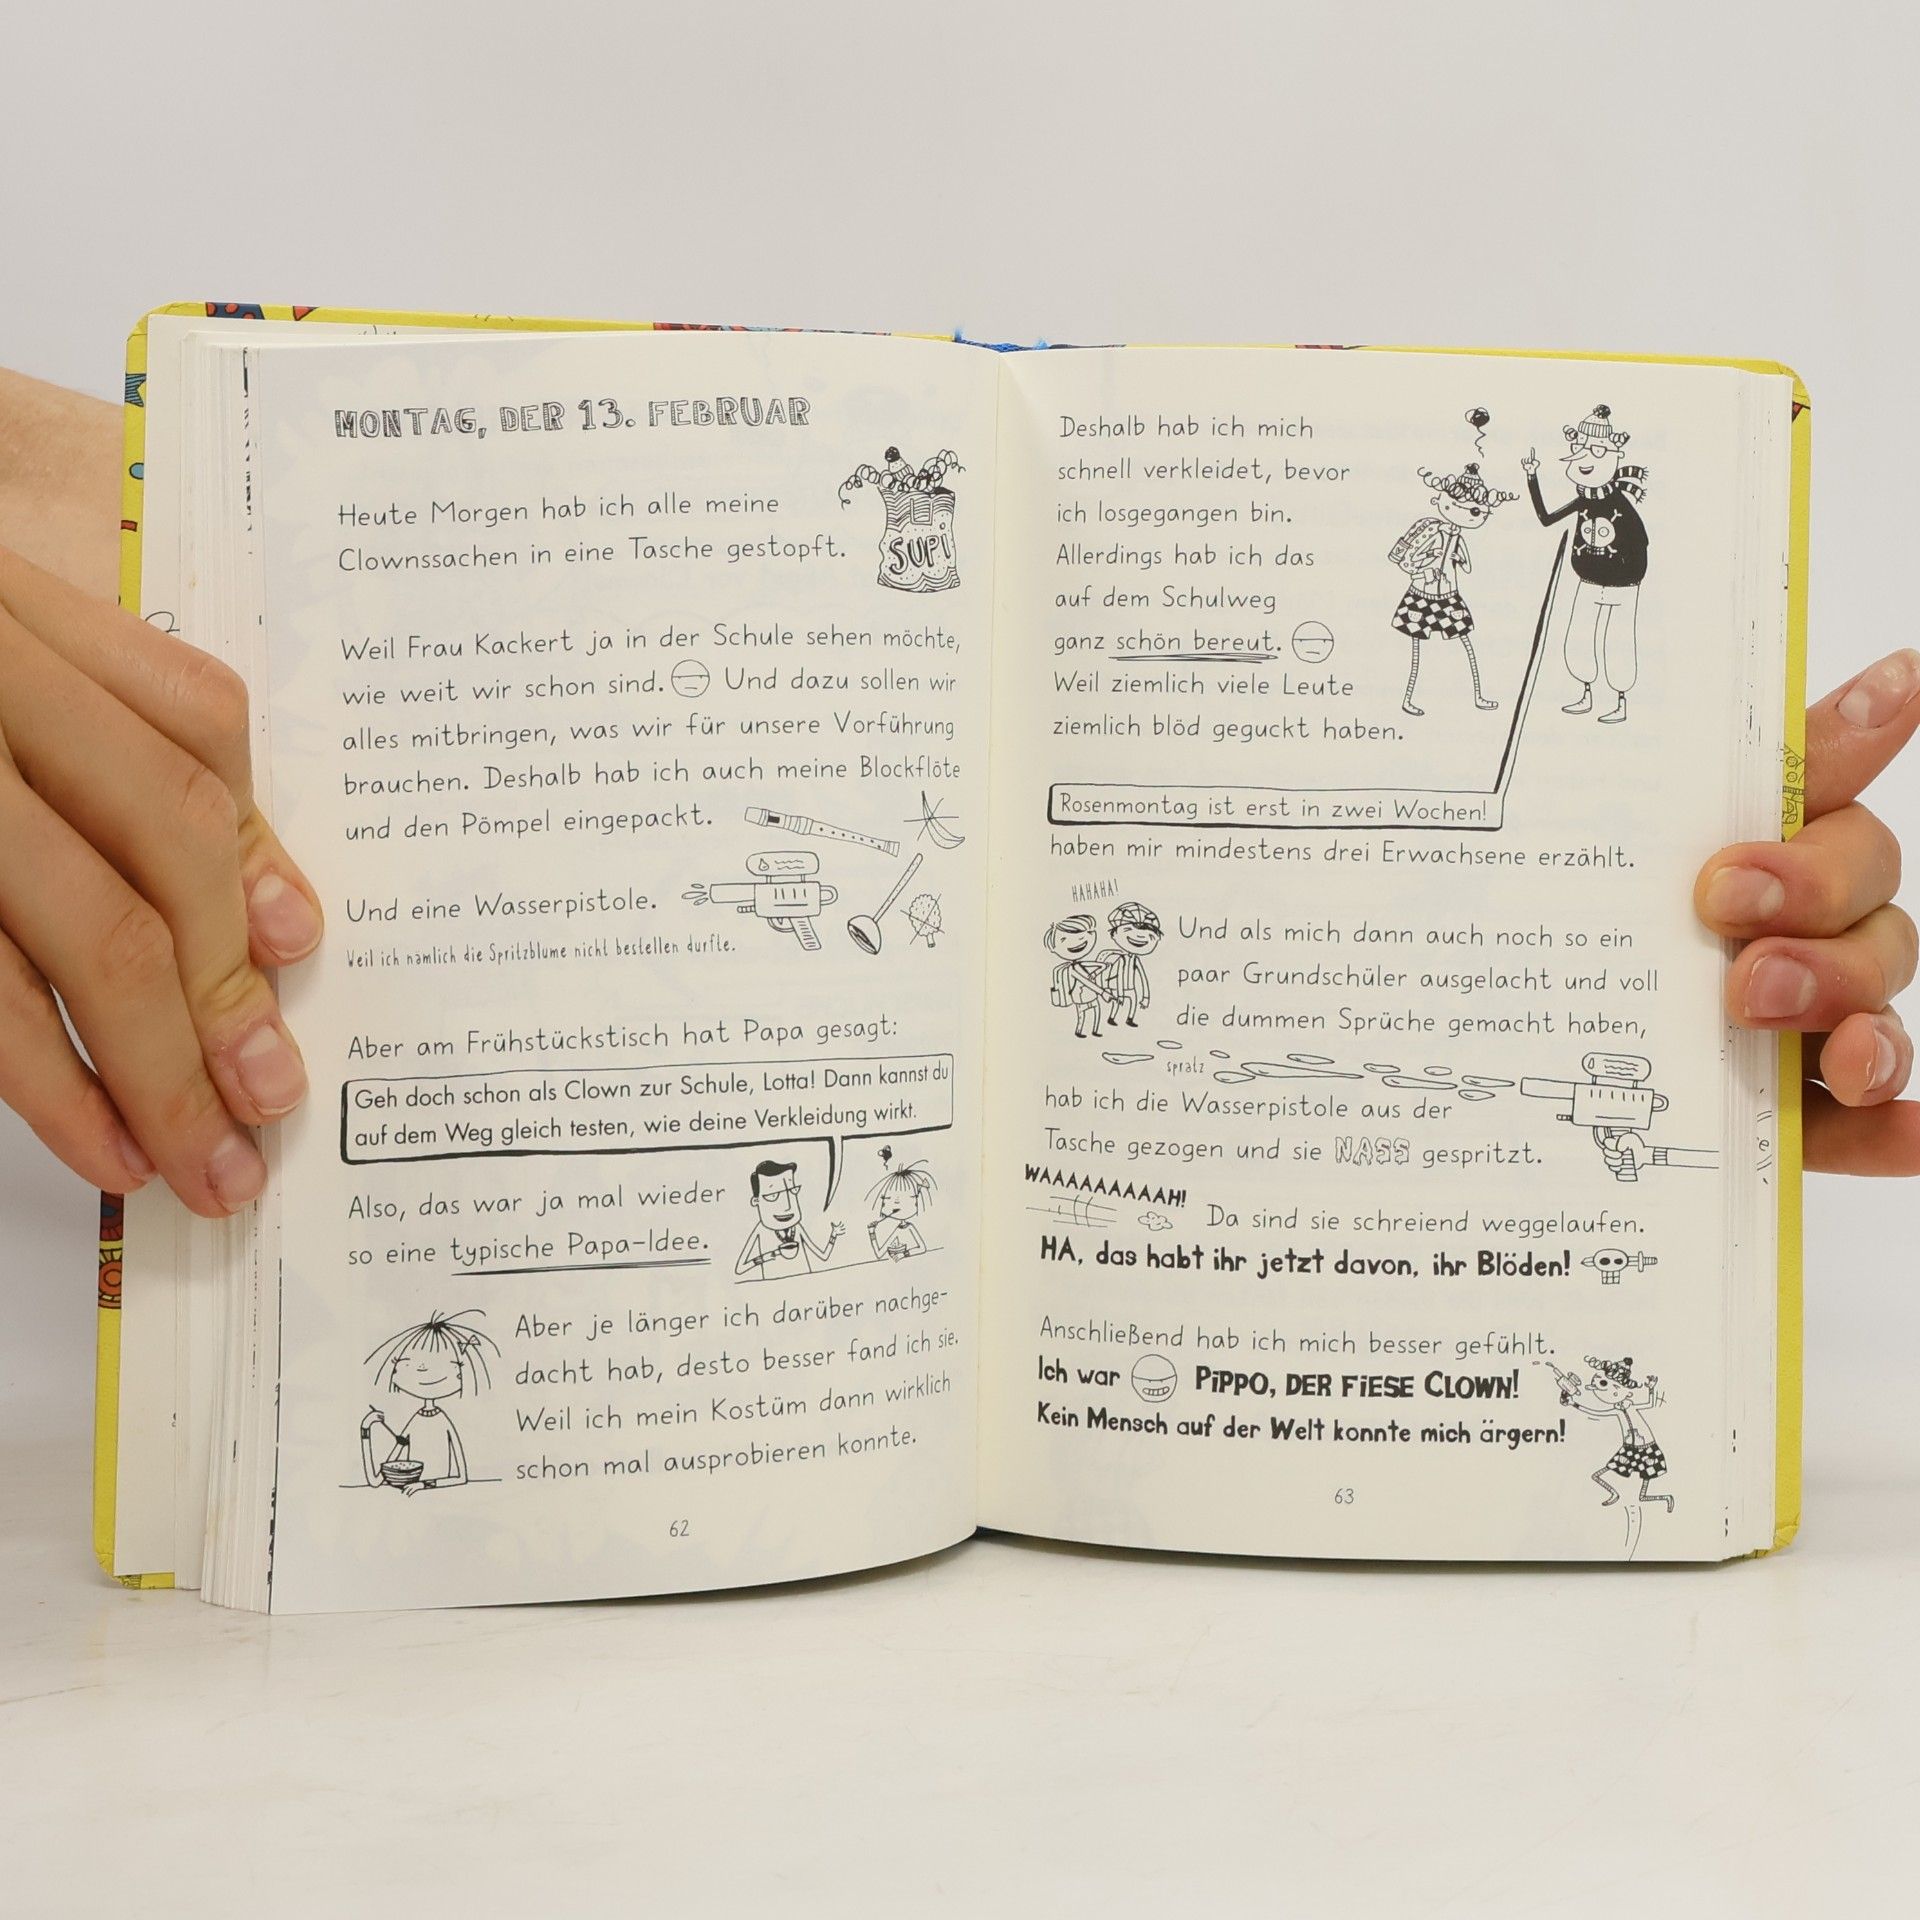 MONTAG, DER 13. FEBRUAR
Heute Morgen hab ich alle meine
Clownssachen in eine Tasche gestopft.
SUPI
Weil Frau Kackert ja in der Schule sehen möchte,
wie weit wir schon sind. Und dazu sollen wir
alles mitbringen, was wir für unsere Vorführung
brauchen. Deshalb hab ich auch meine Blockflöte
und den Pömpel eingepackt.
Und eine Wasserpistole.
Weil ich nämlich die Spritzblume nicht bestellen durfte.
Aber am Frühstückstisch hat Papa gesagt:
Geh doch schon als Clown zur Schule, Lotta! Dann kannst du
auf dem Weg gleich testen, wie deine Verkleidung wirkt.
Also, das war ja mal wieder
so eine typische Papa-Idee.
Aber je länger ich darüber nachge-
dacht hab, desto besser fand ich sie.
Weil ich mein Kostüm dann wirklich
schon mal ausprobieren konnte.
62
Deshalb hab ich mich
schnell verkleidet, bevor
ich losgegangen bin.
Allerdings hab ich das
auf dem Schulweg
ganz schön bereut.
Weil ziemlich viele Leute
ziemlich blöd geguckt haben.
Rosenmontag ist erst in zwei Wochen!
haben mir mindestens drei Erwachsene erzählt.
HAHAHA!
Und als mich dann auch noch so ein
paar Grundschüler ausgelacht und voll
die dummen Sprüche gemacht haben,
spratz
hab ich die Wasserpistole aus der
Tasche gezogen und sie NASS gespritzt.
WAAAAAAAAAH!
Da sind sie schreiend weggelaufen.
HA, das habt ihr jetzt davon, ihr Blöden!
Anschließend hab ich mich besser gefühlt.
Ich war PIPPO, DER FIESE CLOWN!
Kein Mensch auf der Welt konnte mich ärgern!
63